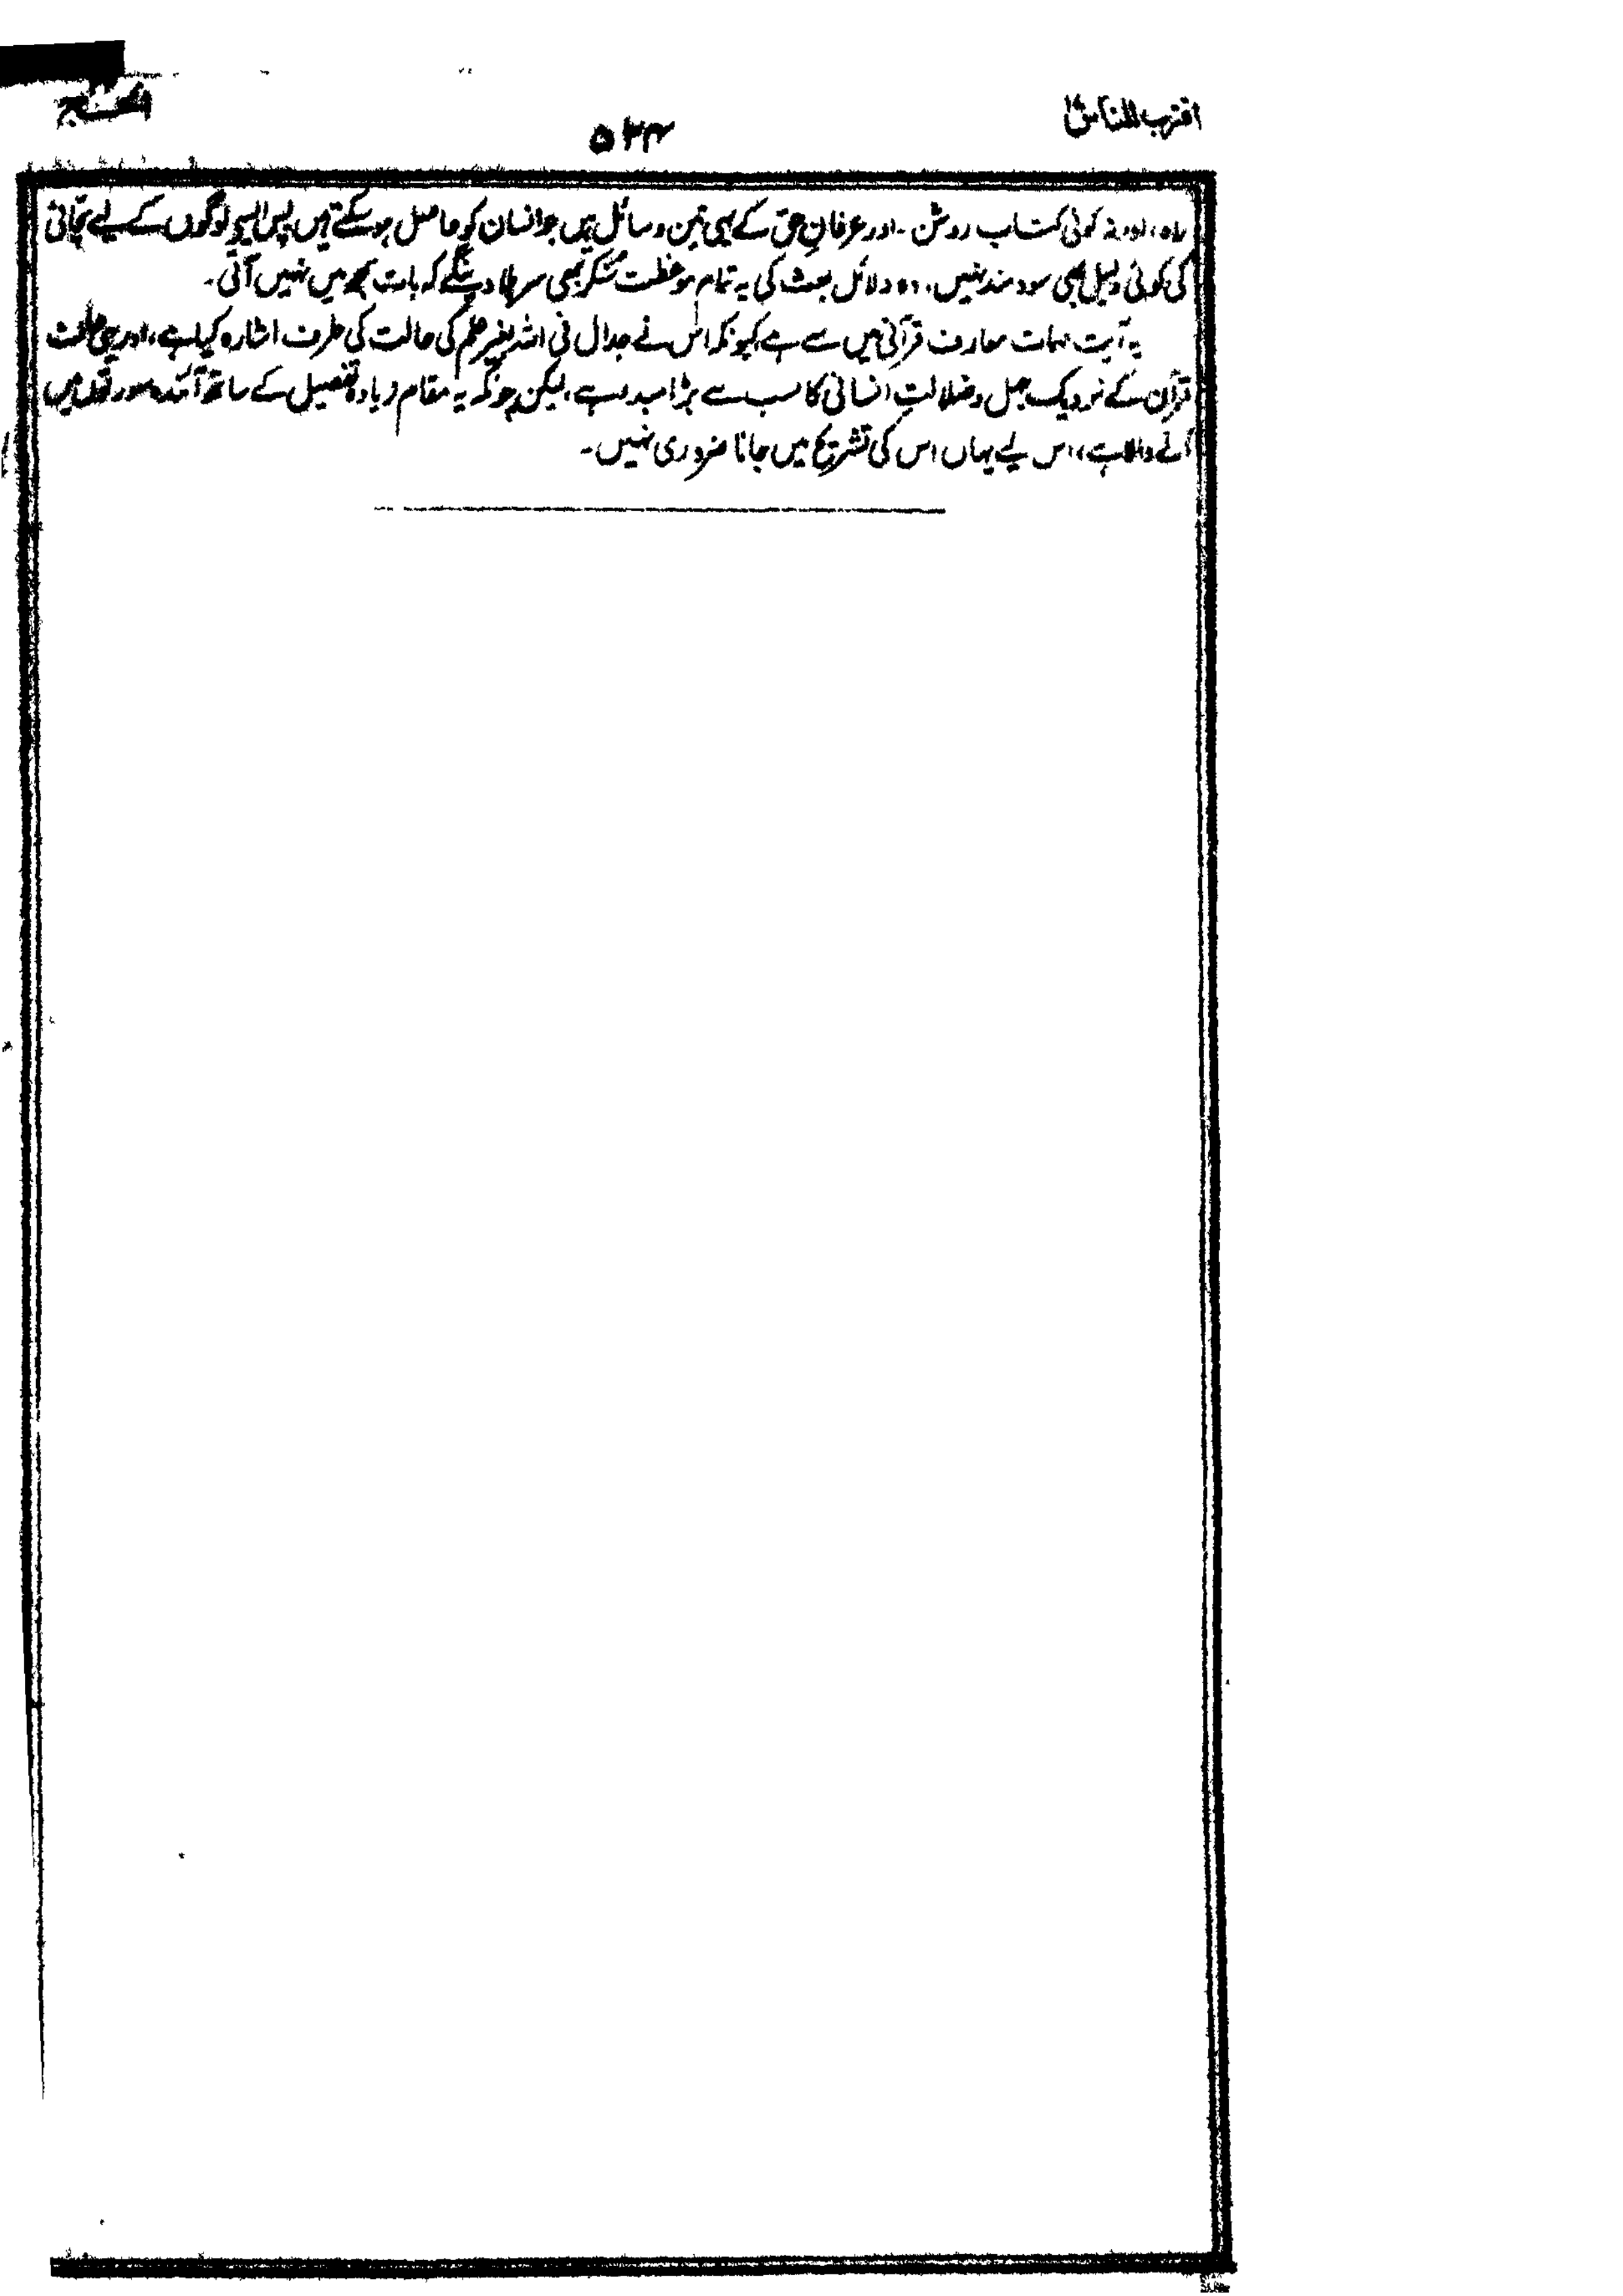 اقترب للناس ۱۷
۵۳۴
الحج
راہ، اور نہ کوئی کتاب روشن۔ اور عرفانِ حق کے یہی تین وسائل ہیں جو انسان کو حاصل ہو سکتے ہیں پس ایسے لوگوں کے لیے سچائی
کی کوئی دلیل بھی سود مند نہیں، وہ دلائل بعث کی یہ تمام موعظت سنکر بھی سر ہلا دینگے کہ بات سمجھ میں نہیں آتی۔
یہ آیت مہمات معارف قرآنی میں سے ہے کیونکہ اس نے جدال فی اللہ بغیر علم کی حالت کی طرف اشارہ کیا ہے، اور یہی حالت
قرآن کے نزدیک جہل و ضلالتِ انسانی کا سب سے بڑا مبدء ہے، لیکن چونکہ یہ مقام زیادہ تفصیل کے ساتھ آئندہ سورتوں میں
آنے والا ہے، اس لیے یہاں اس کی تشریح میں جانا ضروری نہیں۔